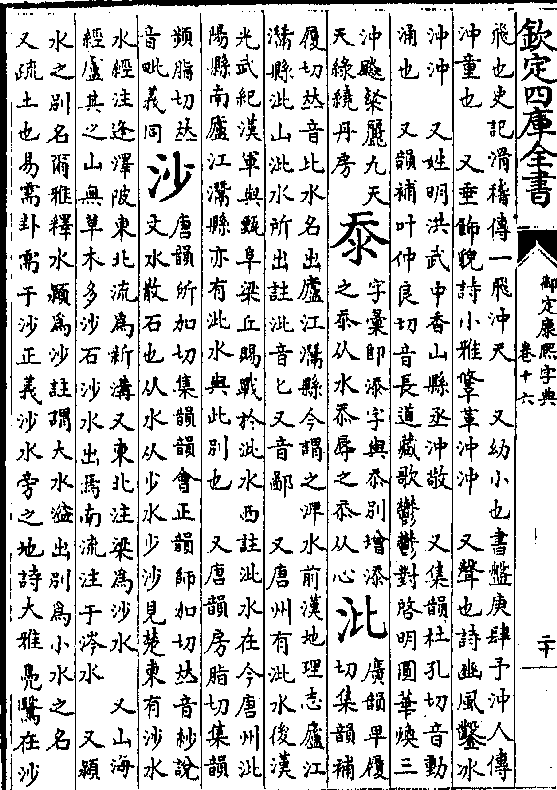 欽定四庫全書
御定康熙字典
卷十六
二十
飛也史記滑稽傳一飛沖天 又幼小也書盤庚肆予沖人傳
沖童也 又垂飾貌詩小雅鞗革沖沖 又聲也詩豳風鑿冰
沖沖 又姓明洪武中香山縣丞沖敬 又集韻杜孔切音動
涌也 又韻補叶仲良切音長道藏歌鬱鬱對啓明圓華煥三
沖飈粲麗九天
天綠繞丹房
沗
字彙即添字與忝別增添
之沗从水忝辱之忝从心
沘
廣韻卑履
切集韻補
履切𠀤音比水名出廬江灊縣今謂之淠水前漢地理志廬江
灊縣沘山沘水所出註沘音匕又音鄙 又唐州有沘水後漢
光武紀漢軍與甄阜梁丘賜戰於沘水西註沘水在今唐州沘
陽縣南廬江灊縣亦有沘水與此別也 又唐韻房脂切集韻
頻脂切𠀤
音毗義同
沙
唐韻所加切集韻韻會正韻師加切𠀤音紗說
文水散石也从水从少水少沙見楚東有沙水
水經注逢澤陂東北流為新溝又東北注梁為沙水 又山海
經盧其之山無草木多沙石沙水出焉南流注于涔水 又潁
水之別名爾雅釋水潁為沙註謂大水溢出別為小水之名
又疏土也易需卦需于沙正義沙水旁之地詩大雅鳧鷖在沙